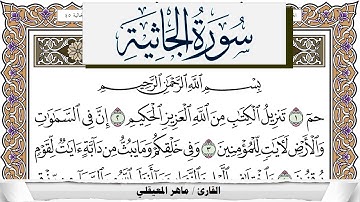 سُورَةُ الجَاثِيَةِ
بِسْمِ اللَّهِ الرَّحْمَٰنِ الرَّحِيمِ
حمٓ ١ تَنزِيلُ الْكِتَٰبِ مِنَ اللَّهِ الْعَزِيزِ الْحَكِيمِ ٢ إِنَّ فِي السَّمَٰوَٰتِ
وَالْأَرْضِ لَآيَٰتٍ لِّلْمُؤْمِنِينَ ٣ وَفِي خَلْقِكُمْ وَمَا يَبُثُّ مِن دَابَّةٍ ءَايَٰتٌ لِّقَوْمٍ
القارئ / ماهر المعيقلي